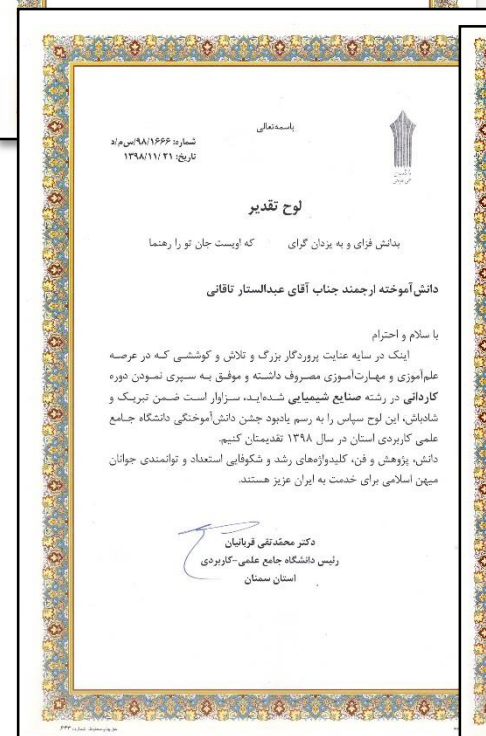 باسمه‌تعالی
شماره: ۹۸/۱۶۶۶/س‌م/د
تاریخ: ۱۳۹۸/۱۱/۲۱
لوح تقدیر
بدانش فزای و به یزدان گرای که اویست جان تو را رهنما
دانش‌آموخته ارجمند جناب آقای عبدالستار تاقانی
با سلام و احترام
اینک در سایه عنایت پروردگار بزرگ و تلاش و کوششی که در عرصه
علم‌آموزی و مهارت‌آموزی مصروف داشته و موفق به سپری نمودن دوره
کاردانی در رشته صنایع شیمیایی شده‌اید، سزاوار است ضمن تبریک و
شادباش، این لوح سپاس را به رسم یادبود جشن دانش‌آموختگی دانشگاه جامع
علمی کاربردی استان در سال ۱۳۹۸ تقدیمتان کنیم.
دانش، پژوهش و فن، کلیدواژه‌های رشد و شکوفایی استعداد و توانمندی جوانان
میهن اسلامی برای خدمت به ایران عزیز هستند.
دکتر محمّدتقی قربانیان
رئیس دانشگاه جامع علمی-کاربردی
استان سمنان